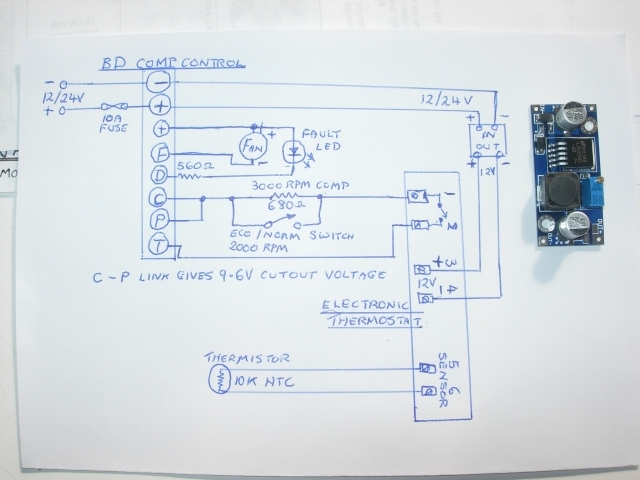 BD COMP CONTROL
-
- 12/24V
+
+
10A
FUSE
+
12/24V
+
-
IN
OUT
+
-
12V
+
+
FAN
-
FAULT
LED
F
D
560Ω
C
3000 RPM COMP
680Ω
P
ECO/NORM SWITCH
2000 RPM
T
1
2
3 +
12V
4 -
C-P LINK GIVES 9.6V CUTOUT VOLTAGE
ELECTRONIC
THERMOSTAT.
THERMISTOR
10K NTC
5 6
SENSOR
MO